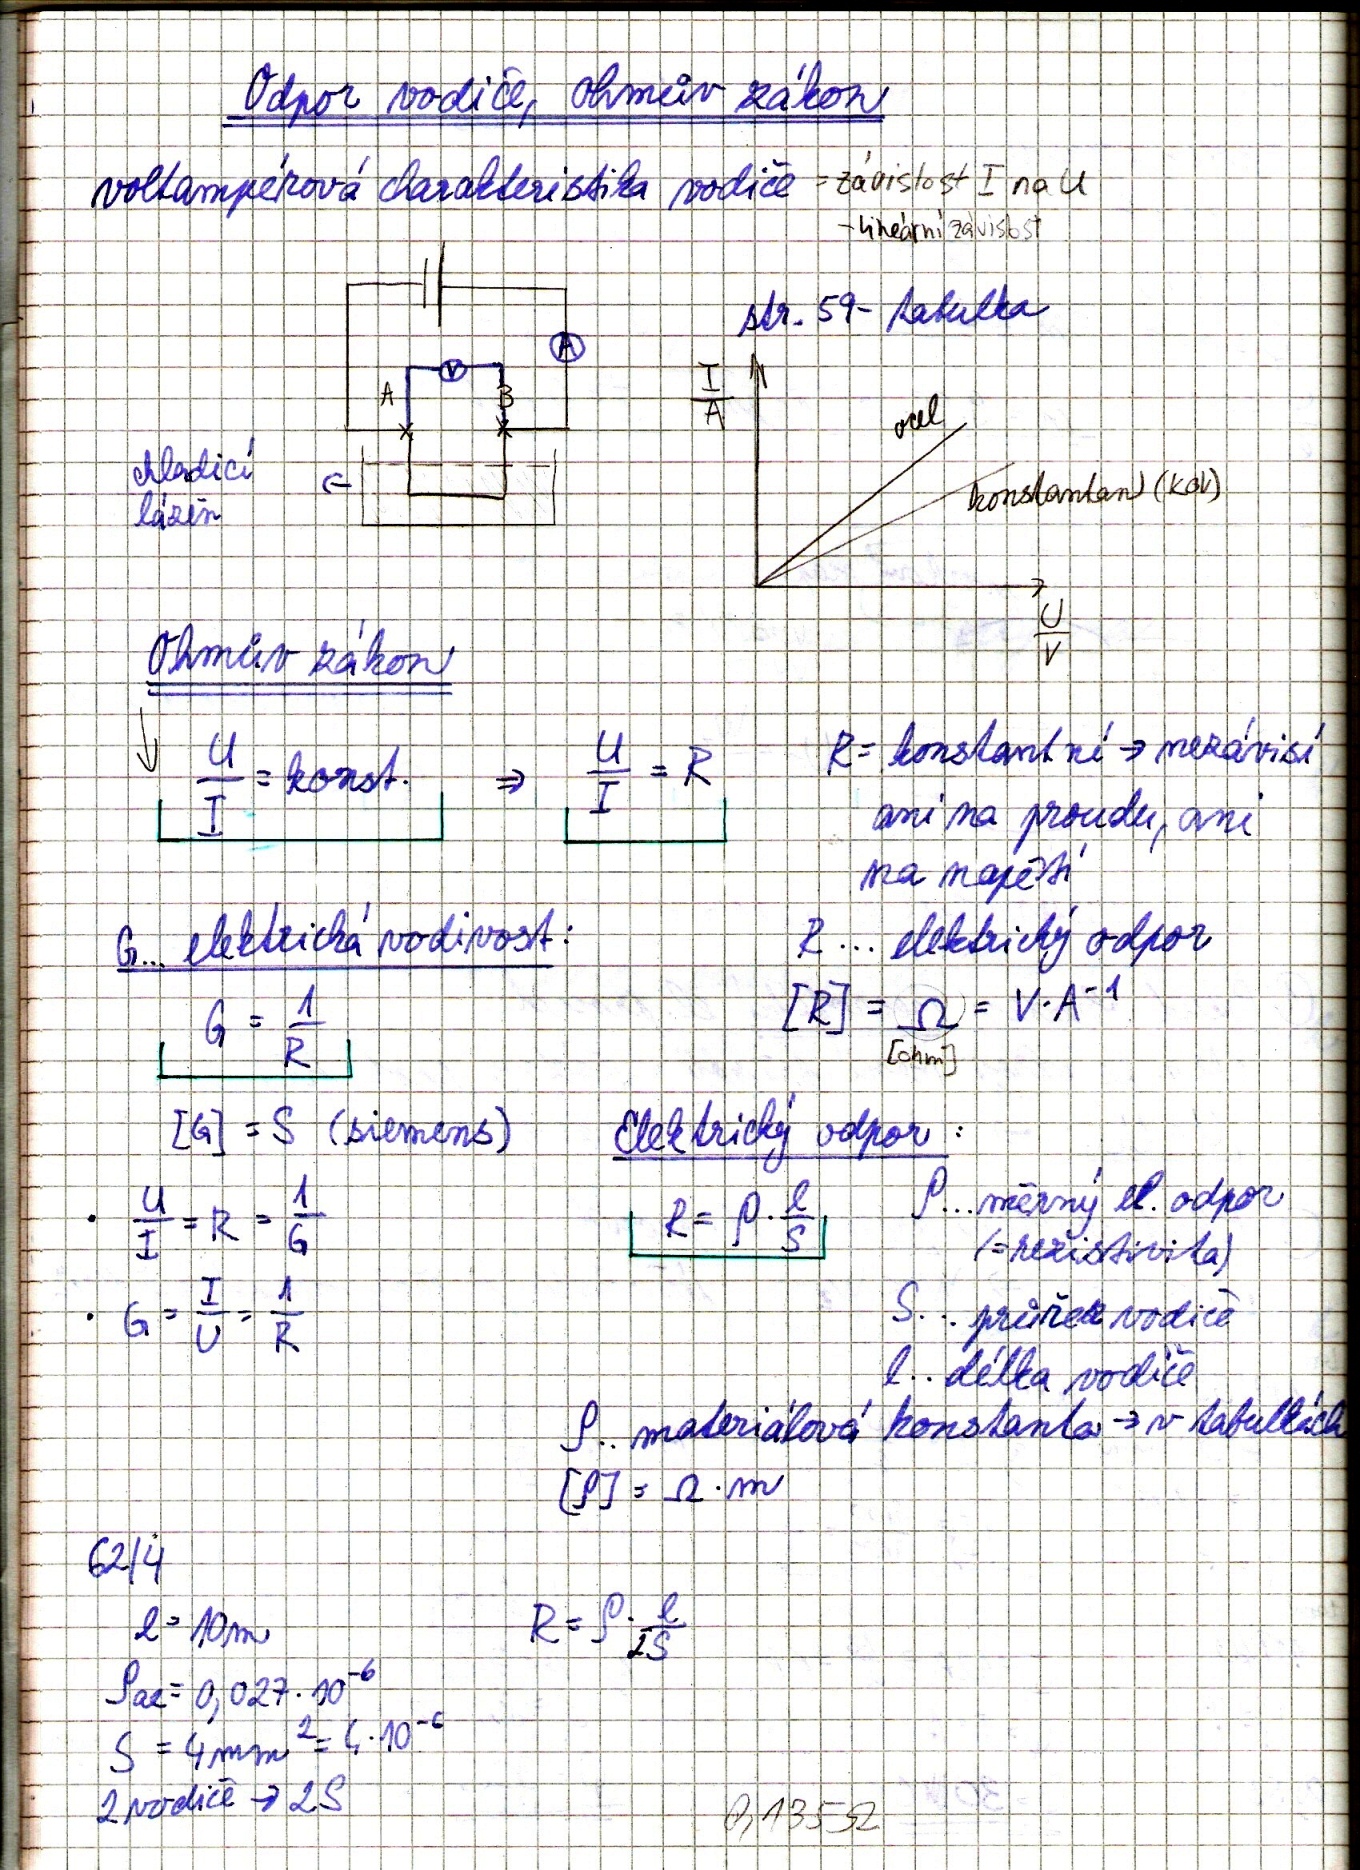 Odpor vodiče, Ohmův zákon
voltampérová charakteristika vodiče = závislost I na U
- lineární závislost
str. 59 - tabulka
A
V
A
B
I/A
ocel
konstantan (kov)
chladicí
lázeň
U/V
Ohmův zákon
U/I = konst. ⇒ U/I = R
R = konstantní → nezávisí
ani na proudu, ani
na napětí
G... elektrická vodivost:
G = 1/R
[G] = S (siemens)
• U/I = R = 1/G
• G = I/U = 1/R
R... elektrický odpor
[R] = Ω = V·A⁻¹
[ohm]
Elektrický odpor:
R = ρ · l/S
ρ... měrný el. odpor
(=rezistivita)
S... průřez vodiče
l.. délka vodiče
ρ.. materiálová konstanta → v tabulkách
[ρ] = Ω · m
62/4
l = 10m
R = ρ · l/2S
ρ = 0,027·10⁻⁶
S = 4mm² = 4·10⁻⁶
2 vodiče → 2S
0,135Ω